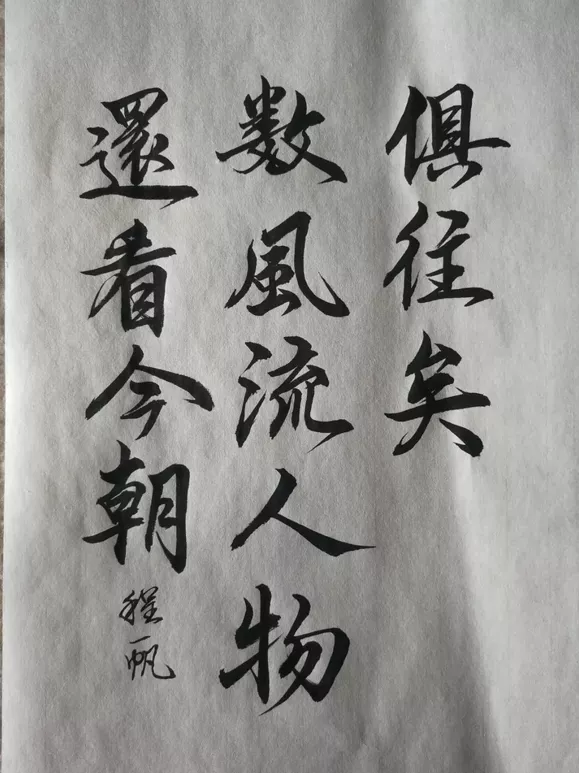 俱往矣
数風流人物
還看今朝
程帆